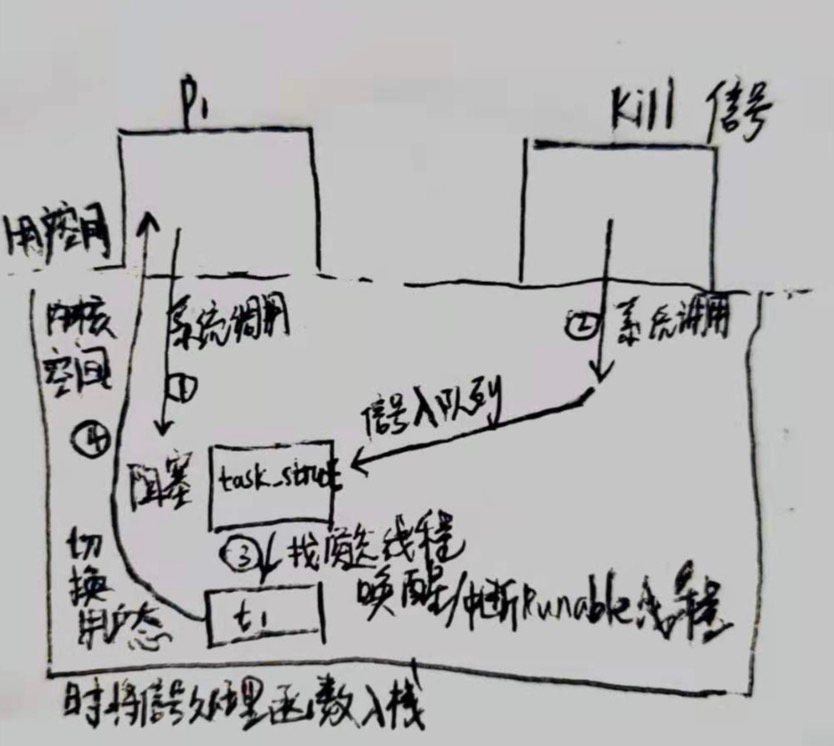 P1
Kill 信号
用户空间
内核
空间
系统调用
①
②
系统调用
信号入队列
④
阻塞
task_struct
③
找顺次线程
唤醒/中断Runable线程
t1
切
换
用户态
时将信号处理函数入栈